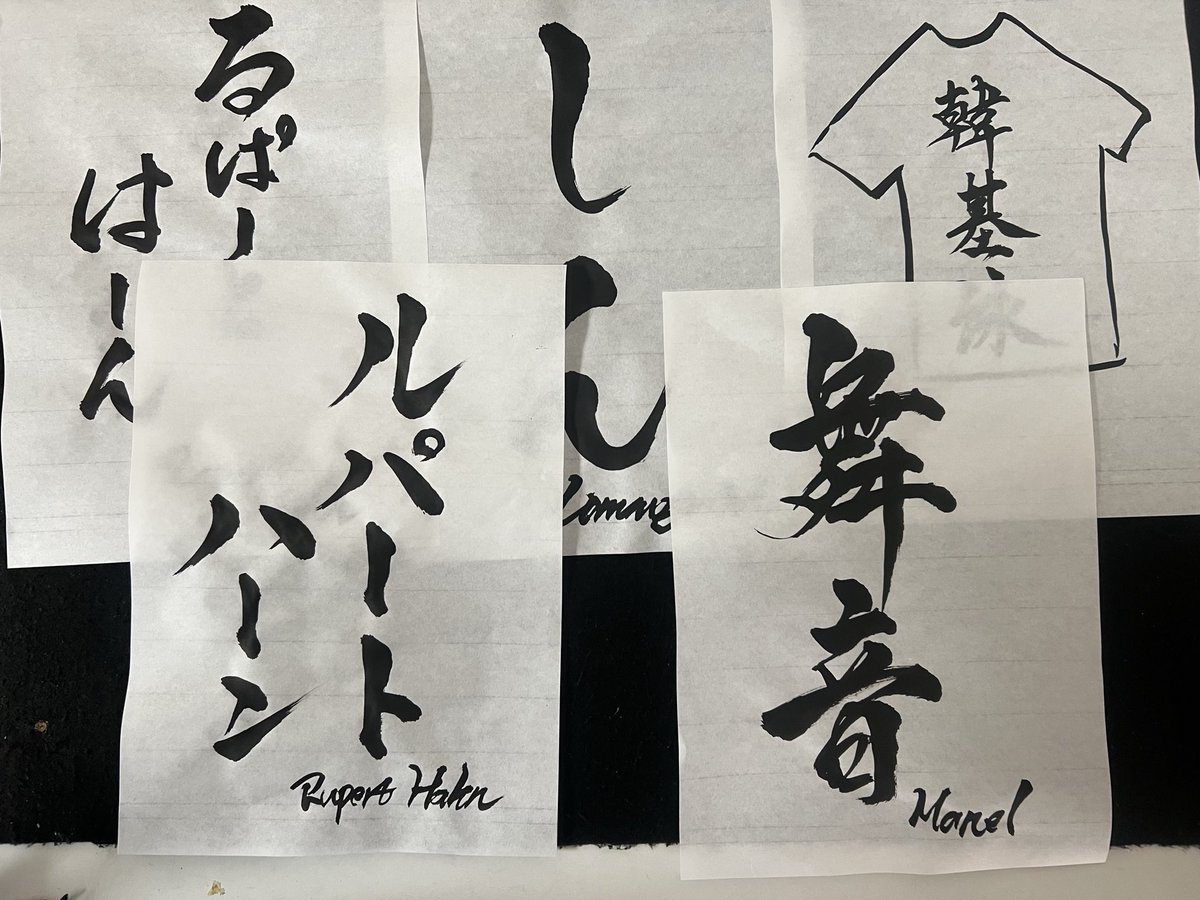 るぱー
はーん
しん
韓基
ルパート
ハーン
Rupert Hahn
舞音
Manel